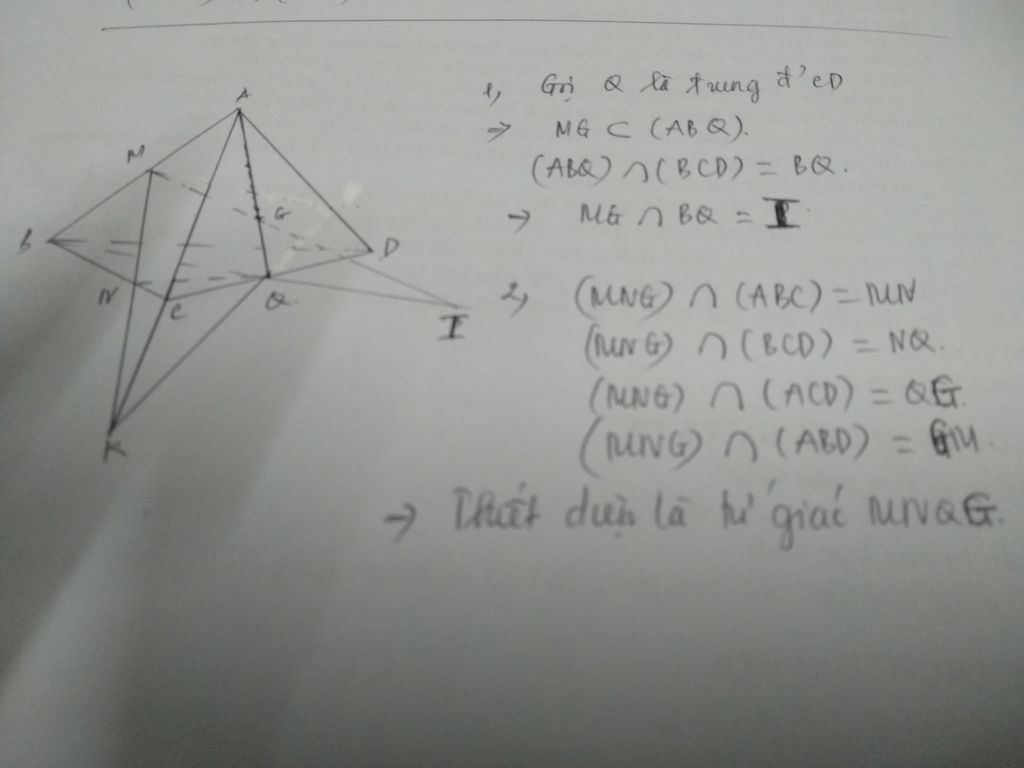 A
M
B
G
D
N
C
Q
I
K
1, Gọi Q là trung đ' CD
⇒ MG ⊂ (ABQ).
(ABQ) ∩ (BCD) = BQ.
→ MG ∩ BQ = I.
2, (MNG) ∩ (ABC) = MN
(MNG) ∩ (BCD) = NQ.
(MNG) ∩ (ACD) = QG.
(MNG) ∩ (ABD) = GM.
→ Thiết diện là tứ giác MNQG.